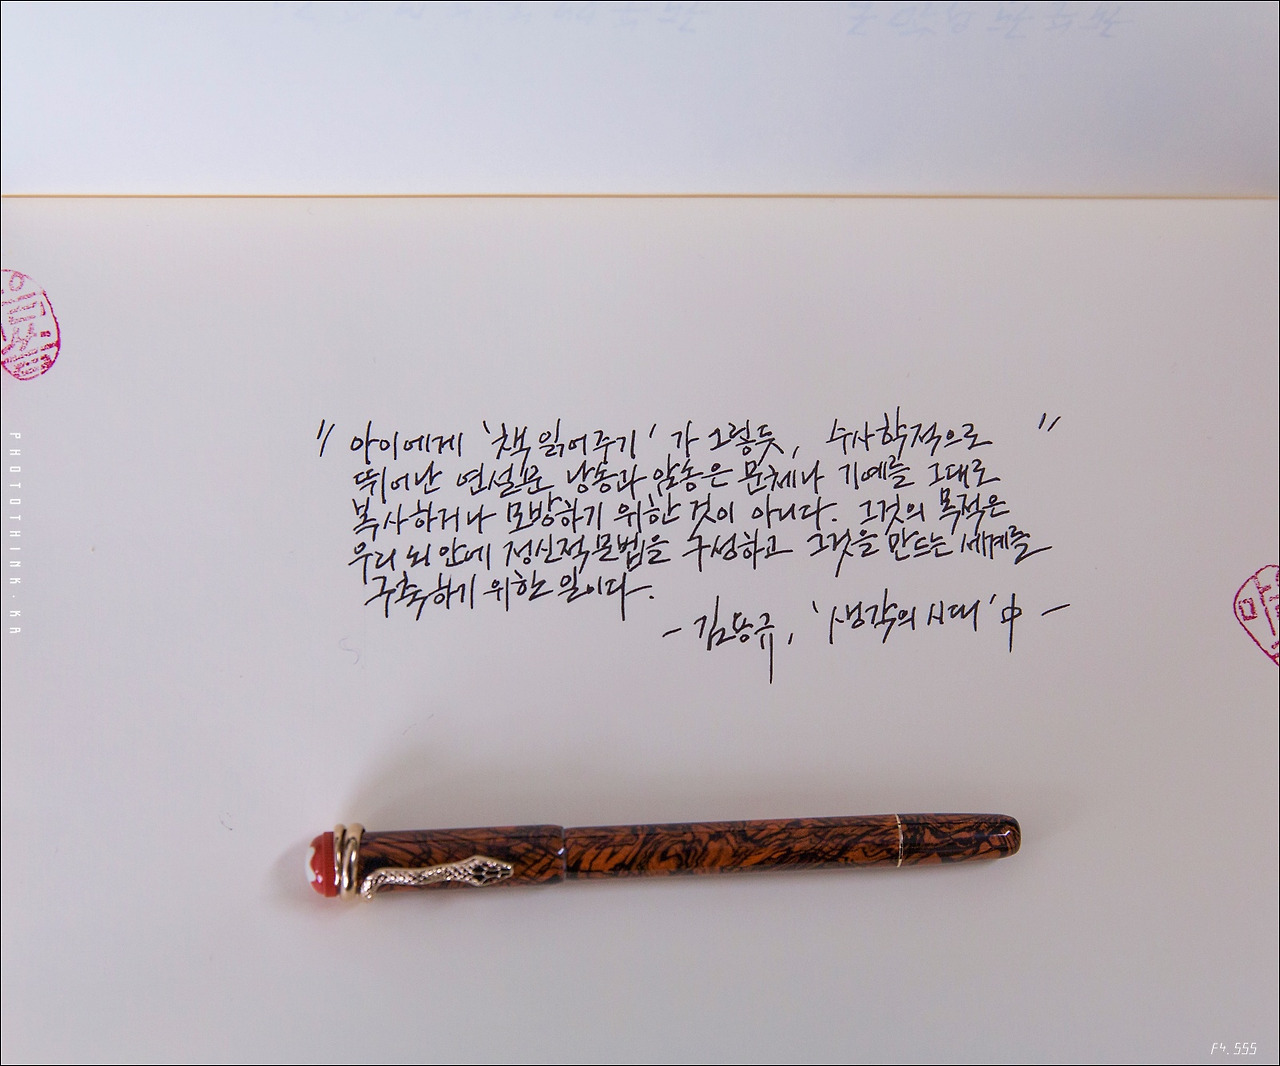 " 아이에게 '책 읽어주기'가 그렇듯, 수사학적으로 "
뛰어난 연설문 낭송과 암송은 문체나 기예를 그대로
복사하거나 모방하기 위한 것이 아니다. 그것의 목적은
우리 뇌 안에 정신적 문법을 구성하고 그것을 만드는 세계를
구축하기 위한 일이다.
- 김용규, '생각의 시대' 中 -
PHOTOTHINK.KR
F4.555